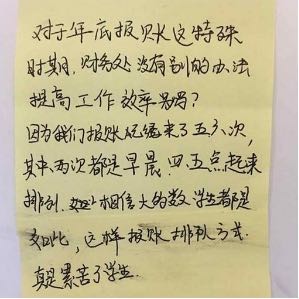 对于年底报账这特殊
时期，财务处没有别的办法
提高工作效率吗？
因为我们报账已经来了五、六次，
其中两次都是早晨四、五点起来
排列。相信大的数学生都是
如此，这样报账排队方式
真是累苦了学生.